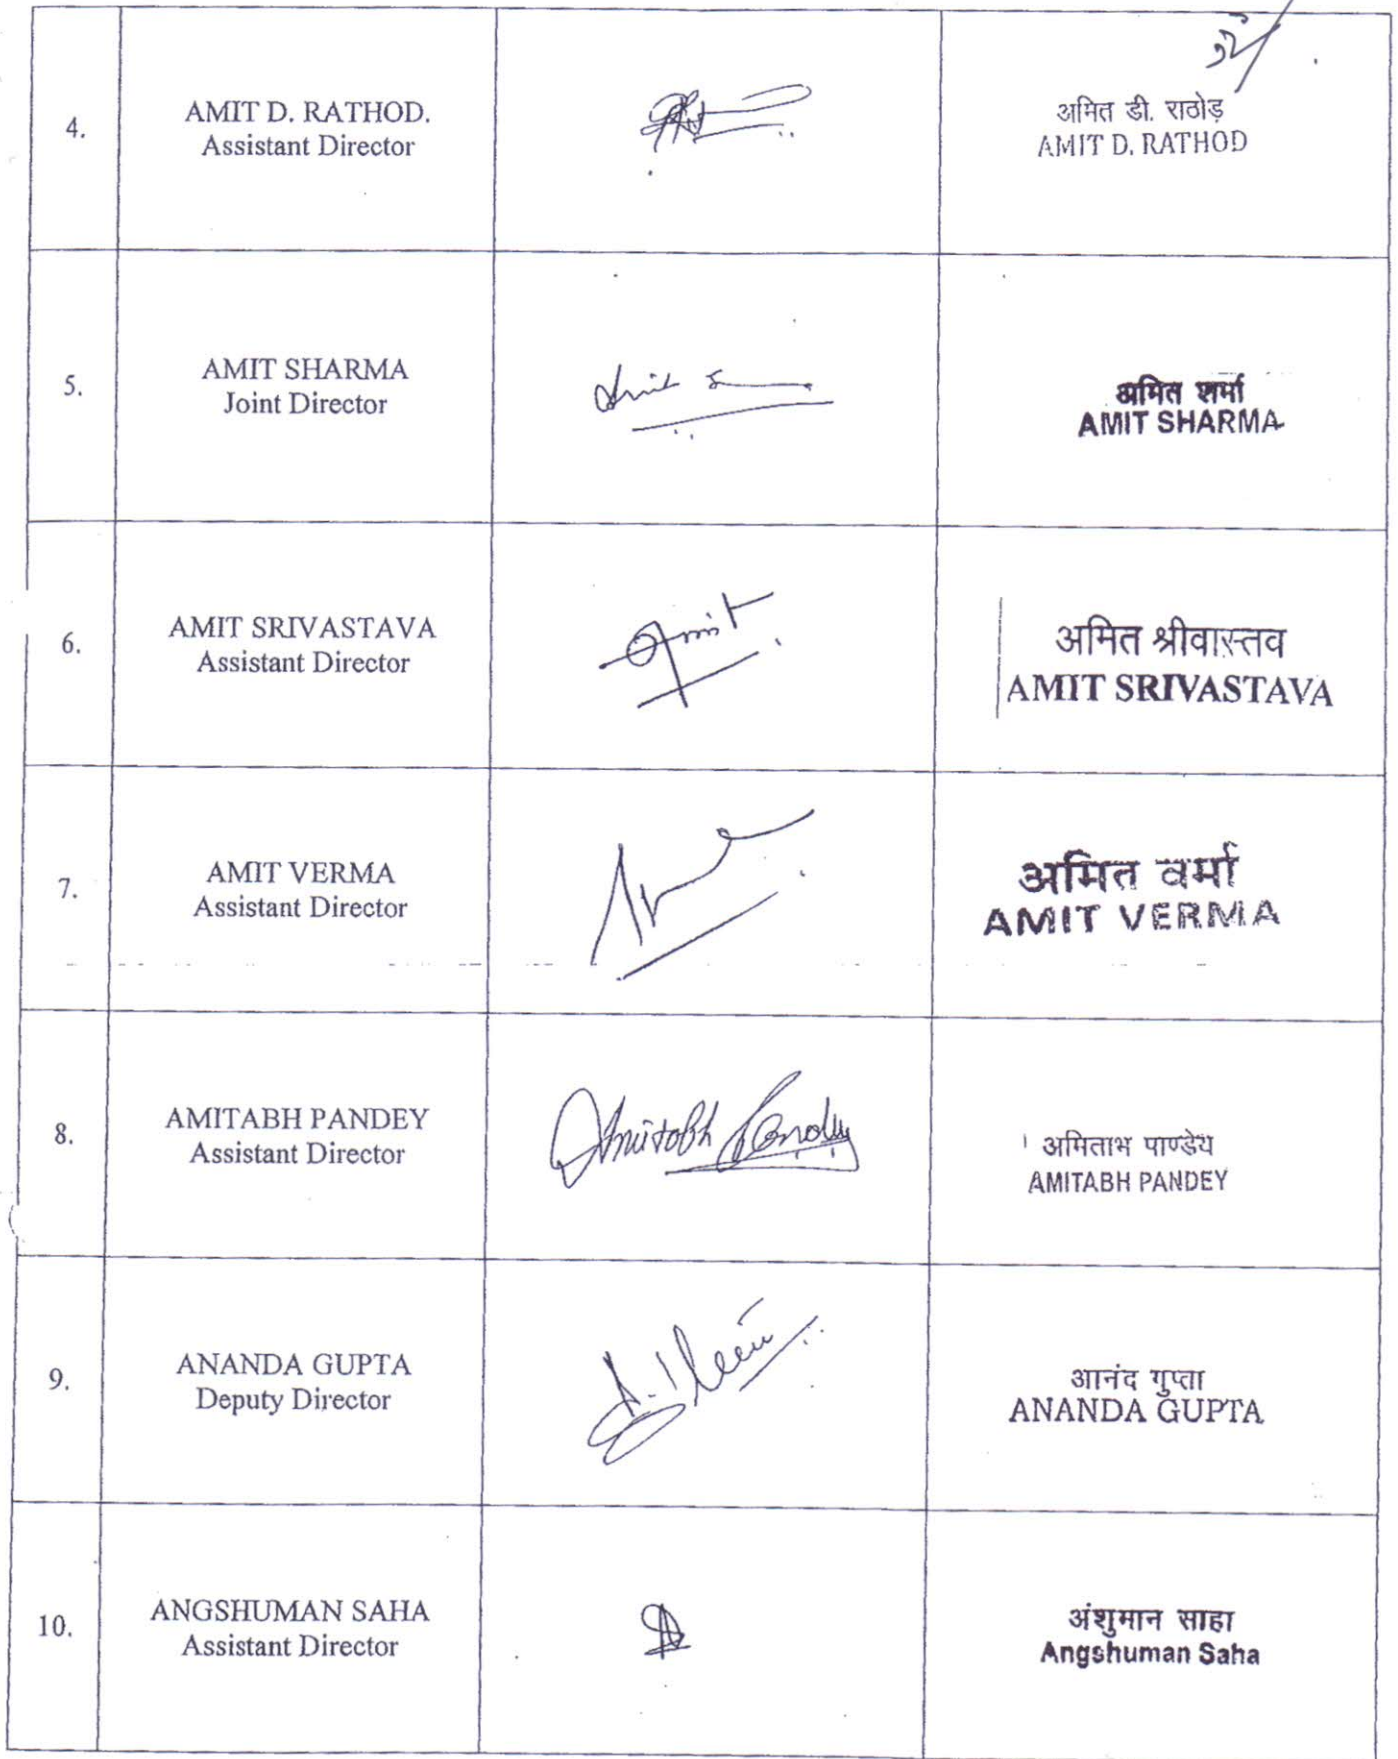 4.
AMIT D. RATHOD.
Assistant Director
अमित डी. राठोड़
AMIT D. RATHOD
5.
AMIT SHARMA
Joint Director
Amit S
अमित शर्मा
AMIT SHARMA
6.
AMIT SRIVASTAVA
Assistant Director
Amit
अमित श्रीवास्तव
AMIT SRIVASTAVA
7.
AMIT VERMA
Assistant Director
अमित वर्मा
AMIT VERMA
8.
AMITABH PANDEY
Assistant Director
Amitabh Pandey
अमिताभ पाण्डेय
AMITABH PANDEY
9.
ANANDA GUPTA
Deputy Director
आनंद गुप्ता
ANANDA GUPTA
10.
ANGSHUMAN SAHA
Assistant Director
अंशुमान साहा
Angshuman Saha